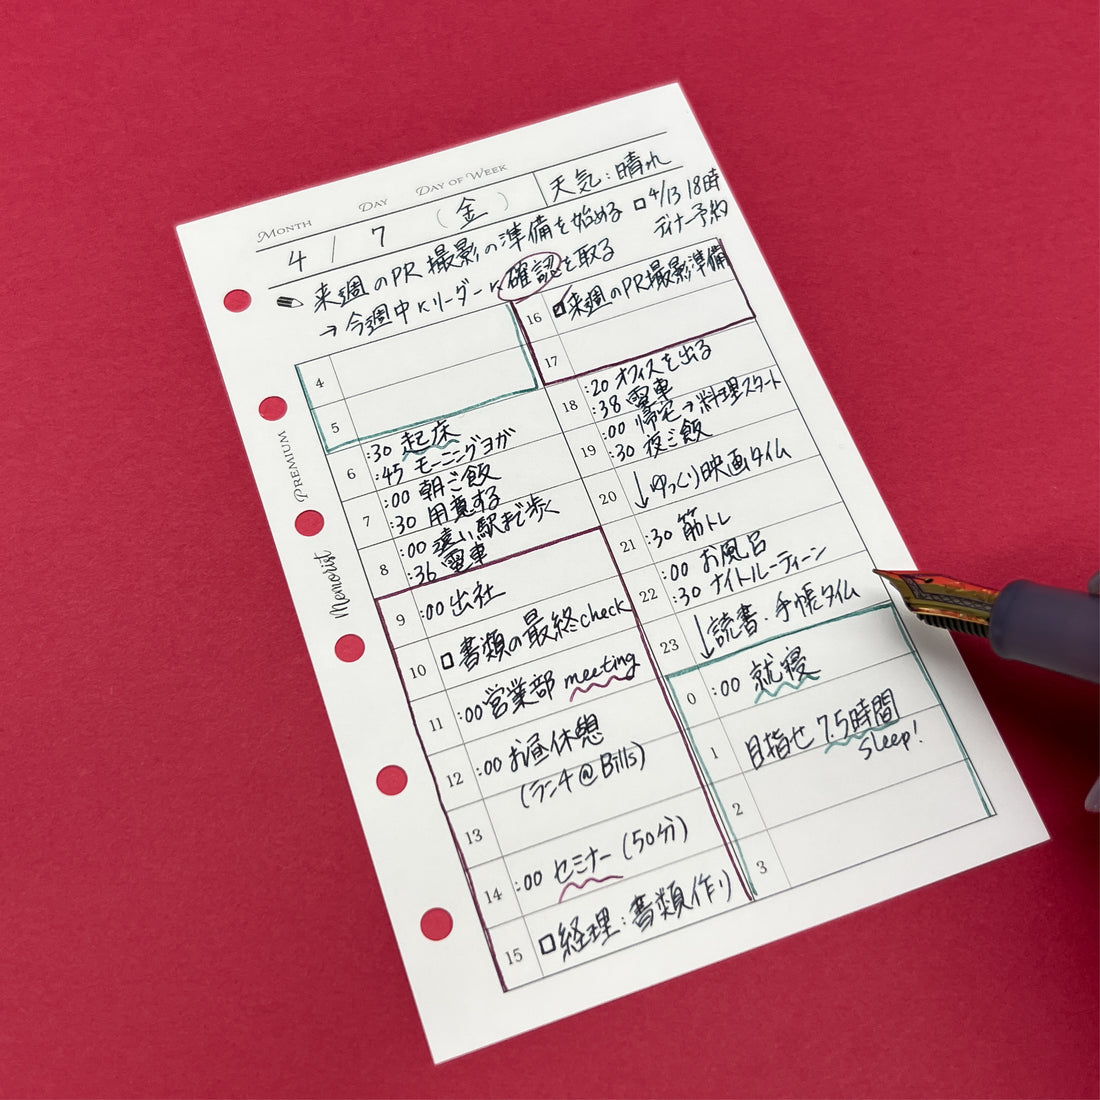 MONTH DAY DAY OF WEEK
4 / 7 (金) 天気:晴れ
来週のPR撮影の準備を始める
→今週中にリーダーに確認を取る
□4/13 18時
ディナー予約
PREMIUM
Memorist
4
5
6 :30 起床
:45 モーニングヨガ
7 :00 朝ご飯
:30 用意する
8 :00 遠い駅まで歩く
:36 電車
9 :00 出社
10 □書類の最終check
11 :00 営業部 meeting
12 :00 お昼休憩
(ランチ@Bills)
13
14 :00 セミナー(50分)
15 □経理:書類作り
16 ☑来週のPR撮影準備
17
18 :20 オフィスを出る
:38 電車
19 :00 帰宅→料理スタート
:30 夜ご飯
20 ↓ゆっくり映画タイム
21 :30 筋トレ
22 :00 お風呂
:30 ナイトルーティーン
23 ↓読書・手帳タイム
0 :00 就寝
1 目指せ7.5時間
sleep!
2
3